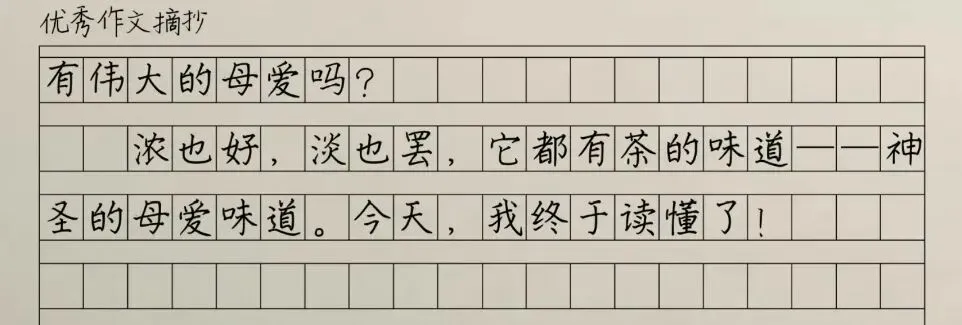 优秀作文摘抄
有伟大的母爱吗？
浓也好，淡也罢，它都有茶的味道——神
圣的母爱味道。今天，我终于读懂了！